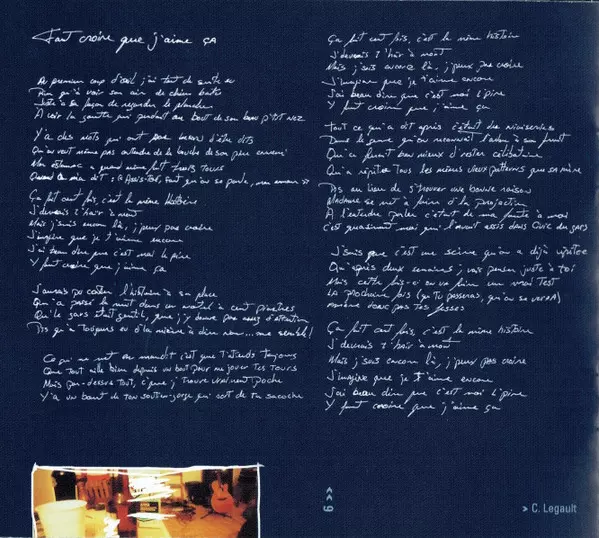 Faut croire que j'aime ça
Au premier coup d'œil j'ai tout de suite su
Rien qu'à voir son air de chien battu
Juste à sa façon de regarder le plancher
À voir la goutte qui pendait au bout de son beau p'tit nez
Y'a des mots qui ont pas besoin d'être dits
Qu'on veut même pas entendre de la bouche de son pire ennemi
Mon estomac a quand même fait trois tours
Quand a m'a dit : « Assis-toé, faut qu'on se parle, mon amour »
Ça fait cent fois, c'est la même histoire
J'devrais t'haïr à mort
Mais j'suis encore là, j'peux pas croire
J'imagine que je t'aime encore
J'ai beau dire que c'est moi le pire
Y faut croire que j'aime ça
J'aurais pu conter l'histoire à sa place
Qu'a passé la nuit dans un motel à cent piastres
Qu'le gars était gentil, que j'y donne pas assez d'attention
Pis qu'a toujours eu d'la misère à dire non... me semble!
Ce qui me met en maudit c'est que j't'attends toujours
Que tout aille bien depuis un bout pour me jouer tes tours
Mais par-dessus tout, c'que j'trouve vraiment poche
Y'a un bout de ton soutien-gorge qui sort de ta sacoche
Ça fait cent fois, c'est la même histoire
J'devrais t'haïr à mort
Mais j'suis encore là, j'peux pas croire
J'imagine que je t'aime encore
J'ai beau dire que c'est moi l'pire
Y faut croire que j'aime ça
Tout ce qu'a dit après c'était des niaiseries
Dans le genre qu'on reconnaît l'arbre à son fruit
Qu'a ferait ben mieux d'rester célibataire
Qu'a répète tous les mêmes vieux patterns que sa mère
Pis au lieu de s'trouver une bonne raison
Madame se met à faire d'la projection
À l'entendre parler c'était de ma faute à moi
C'est quasiment moi qui l'avait assis dans l'cave du gars
J'suis que c'est une scène qu'on a déjà répétée
Qu'après deux semaines j'vais penser juste à toi
Mais cette fois-ci on va faire un vrai test
La prochaine fois (qu'tu penseras, qu'on se verra)
Amène donc pas tes fesses
Ça fait cent fois, c'est la même histoire
J'devrais t'haïr à mort
Mais j'suis encore là, j'peux pas croire
J'imagine que je t'aime encore
J'ai beau dire que c'est moi l'pire
Y faut croire que j'aime ça
9 >>
> C. Legault